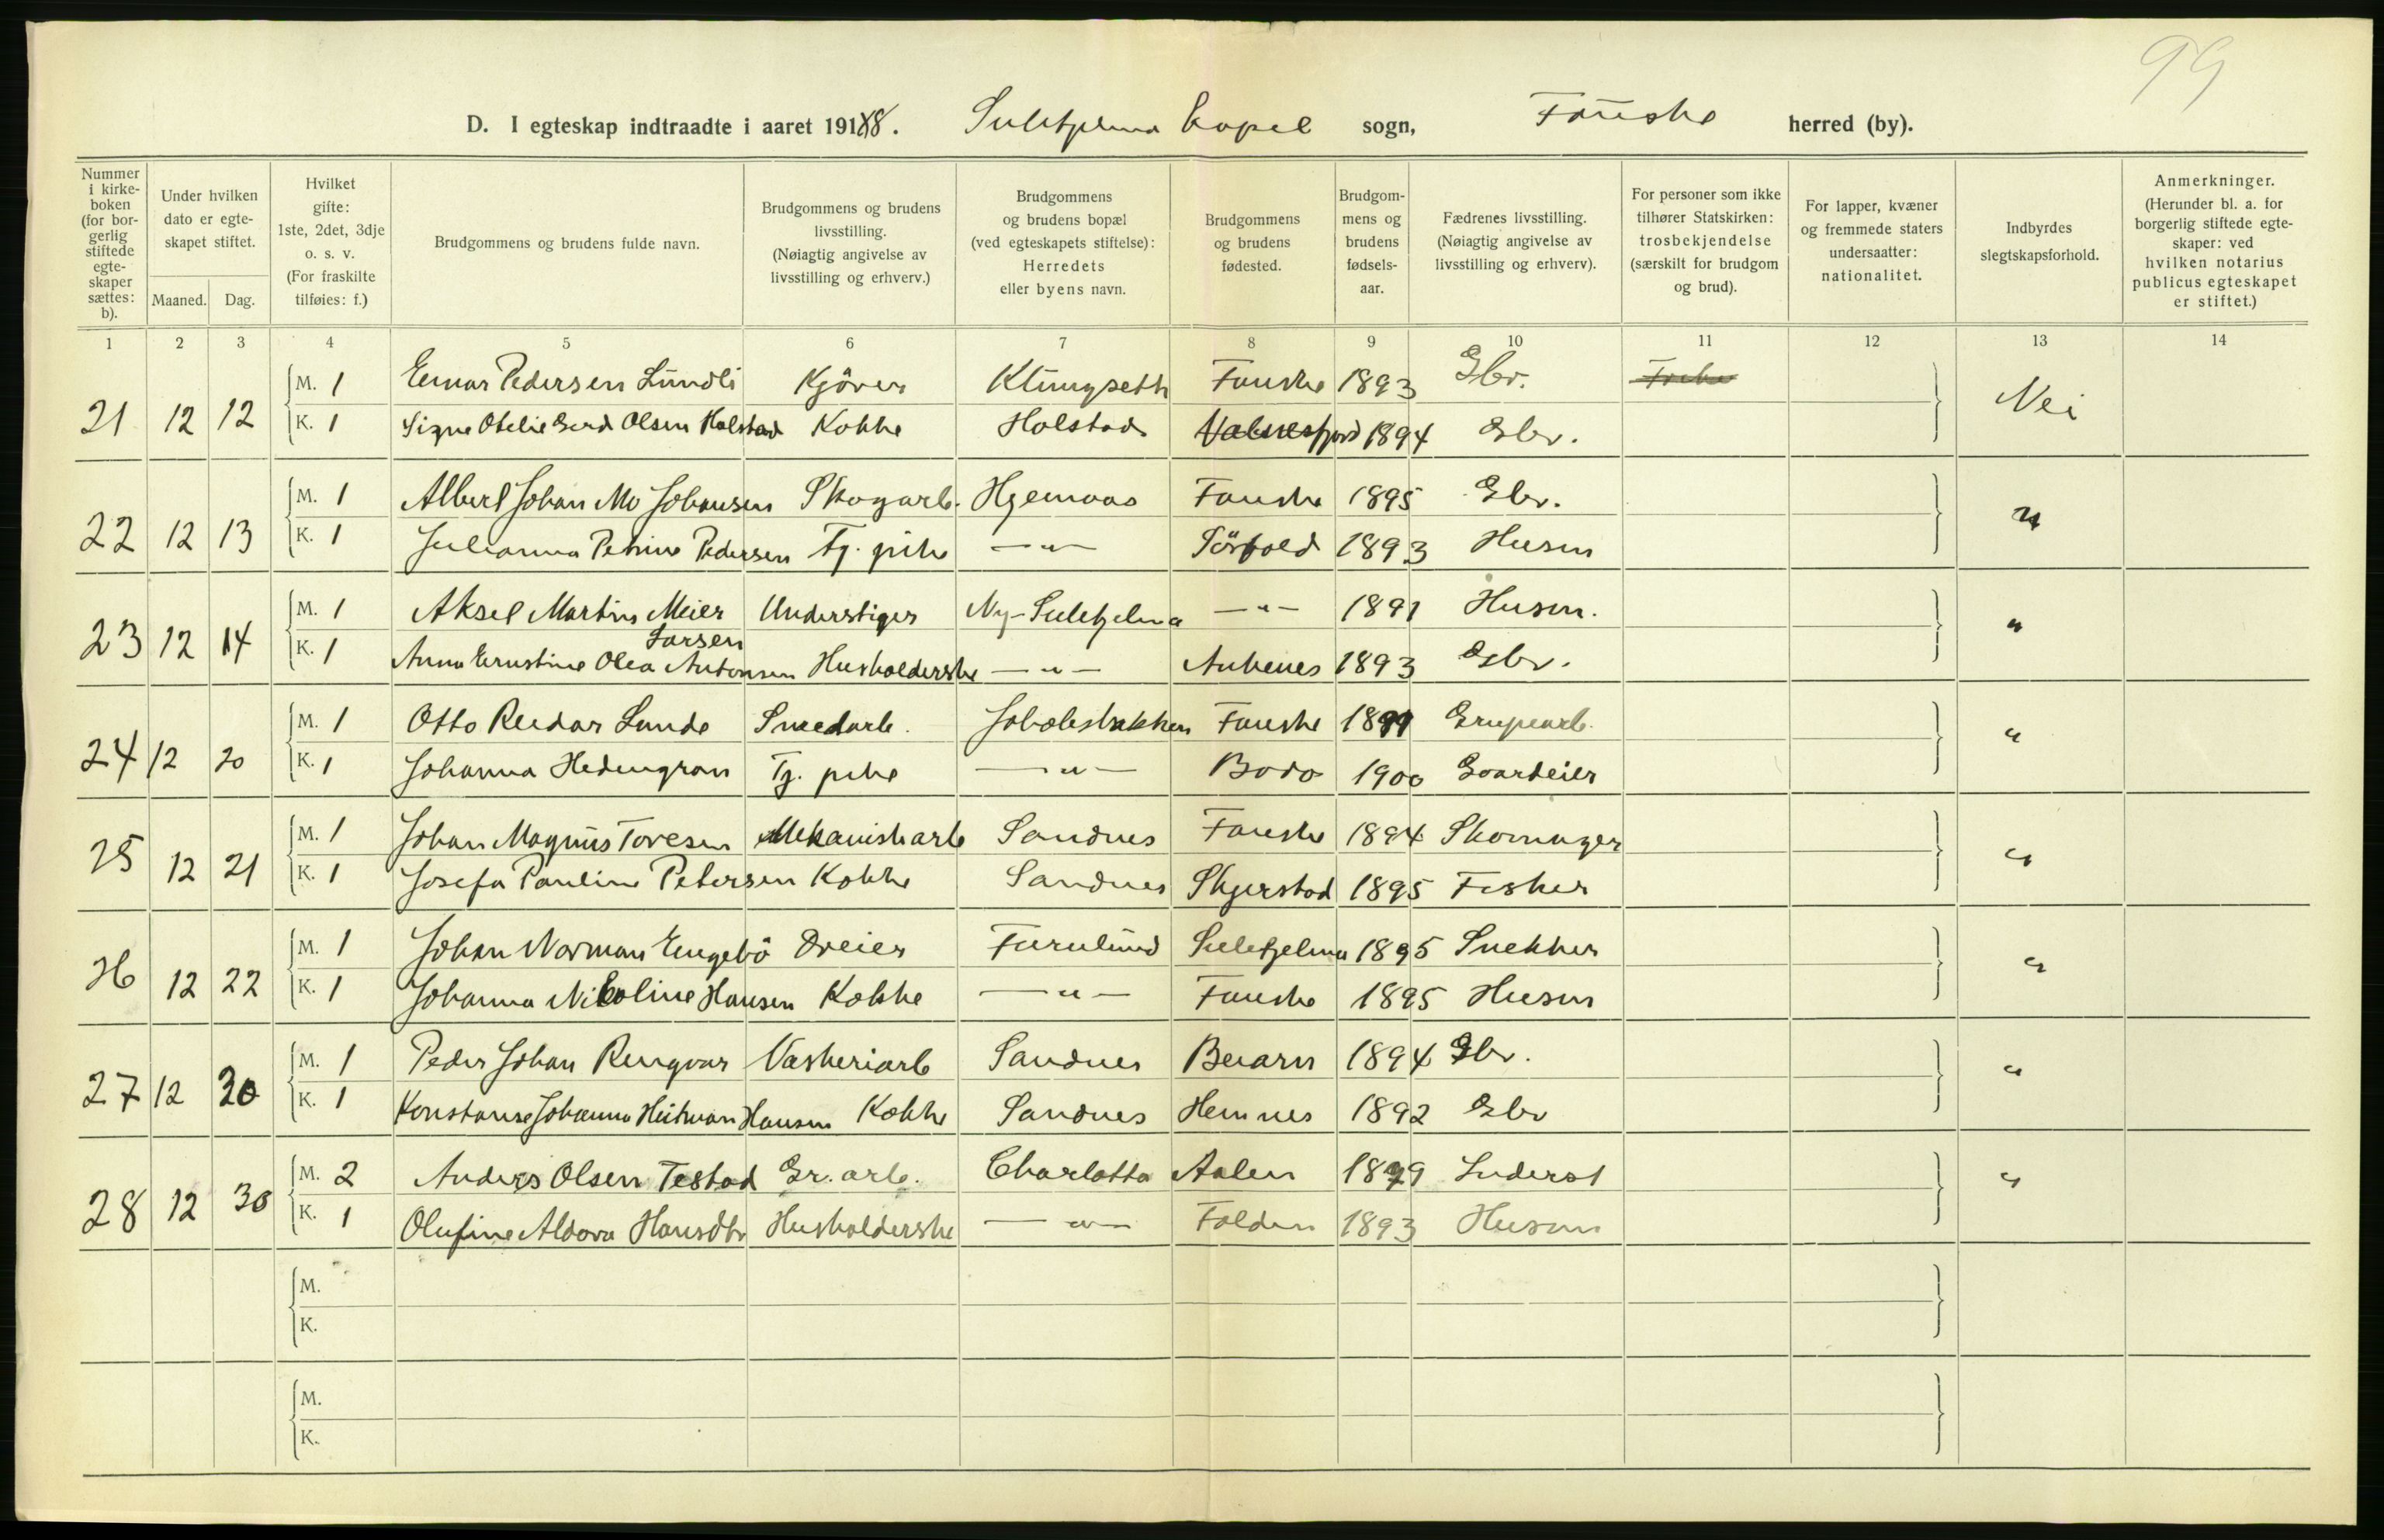 99
D. I egteskap indtraadte i aaret 1918. Sulitjelma kapel sogn, Fauske herred (by).
Nummer i kirkeboken (for borgerlig stiftede egteskaper sættes: b).
Under hvilken dato er egteskapet stiftet.
Maaned. Dag.
Hvilket gifte: 1ste, 2det, 3dje o. s. v. (For fraskilte tilføies: f.)
Brudgommens og brudens fulde navn.
Brudgommens og brudens livsstilling. (Nøiagtig angivelse av livsstilling og erhverv.)
Brudgommens og brudens bopæl (ved egteskapets stiftelse): Herredets eller byens navn.
Brudgommens og brudens fødested.
Brudgommens og brudens fødselsaar.
Fædrenes livsstilling. (Nøiagtig angivelse av livsstilling og erhverv).
For personer som ikke tilhører Statskirken: trosbekjendelse (særskilt for brudgom og brud).
For lapper, kvæner og fremmede staters undersaatter: nationalitet.
Indbyrdes slegtskapsforhold.
Anmerkninger. (Herunder bl. a. for borgerlig stiftede egteskaper: ved hvilken notarius publicus egteskapet er stiftet.)
1 2 3 4 5 6 7 8 9 10 11 12 13 14
21 12 12 M. 1 Einar Pedersen Lundli Kjörer Klungseth Fauske 1893 Gbr. Nei
K. 1 Signe Otelie Gerd Olsen Holstad Kokke Holstad Valnesfjord 1894 Gbr.
22 12 13 M. 1 Albert Johan Mo Johansen Skogarb. Hjemaas Fauske 1895 Gbr. "
K. 1 Julianna Petrine Pedersen Tj. pike — " — Sörfold 1893 Husm
23 12 14 M. 1 Aksel Martin Meier Larsen Understiger Ny-Sulitjelma — " — 1891 Husm. "
K. 1 Anna Ernstine Olea Antonsen Husholderske — " — Ankenes 1893 Gbr.
24 12 20 M. 1 Otto Reidar Lund Smedarb. Jakobsbakken Fauske 1899 Grupearb. "
K. 1 Johanna Hedengran Tj. pike — " — Bodo 1900 Gaardeier
25 12 21 M. 1 Johan Magnus Toresen Mekaniskarb Sandnes Fauske 1894 Skomager "
K. 1 Josefa Pauline Petersen Kokke Sandnes Skjerstad 1895 Fisker
26 12 22 M. 1 Johan Norman Engebö Dreier Furulund Sulitjelma 1895 Snekker "
K. 1 Johanna Nikoline Hansen Kokke — " — Fauske 1895 Husm
27 12 30 M. 1 Peder Johan Ringvar Vaskeriarb Sandnes Beiarn 1894 Gbr. "
K. 1 Konstanse Johanna Heitman Hansen Kokke Sandnes Hemnes 1892 Gbr
28 12 30 M. 2 Anders Olsen Testad Gr. arb. Charlotta Aalen 1879 Inderst "
K. 1 Olufine Aldora Hansdtr Husholderske — " — Folden 1893 Husm
M.
K.
M.
K.